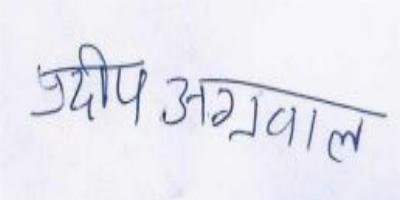 प्रदीप अग्रवाल